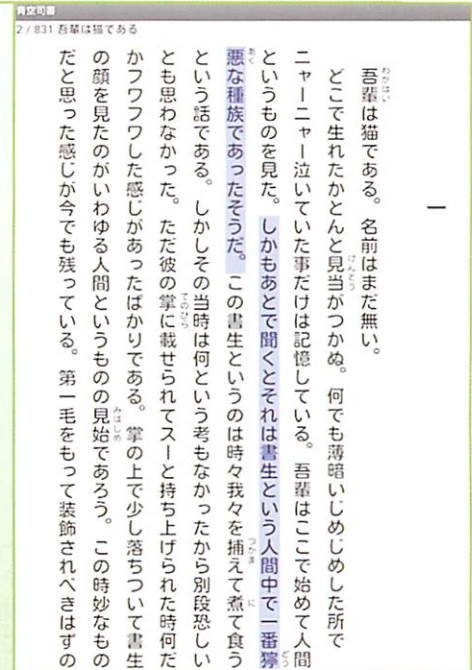 青空司書
2 / 831 吾輩は猫である
一
吾輩は猫である。名前はまだ無い。
どこで生れたかとんと見当がつかぬ。何でも薄暗いじめじめした所で
ニャーニャー泣いていた事だけは記憶している。吾輩はここで始めて人間
というものを見た。しかもあとで聞くとそれは書生という人間中で一番獰
悪な種族であったそうだ。この書生というのは時々我々を捕えて煮て食う
という話である。しかしその当時は何という考もなかったから別段恐しい
とも思わなかった。ただ彼の掌に載せられてスーと持ち上げられた時何だ
かフワフワした感じがあったばかりである。掌の上で少し落ちついて書生
の顔を見たのがいわゆる人間というものの見始であろう。この時妙なもの
だと思った感じが今でも残っている。第一毛をもって装飾されべきはずの